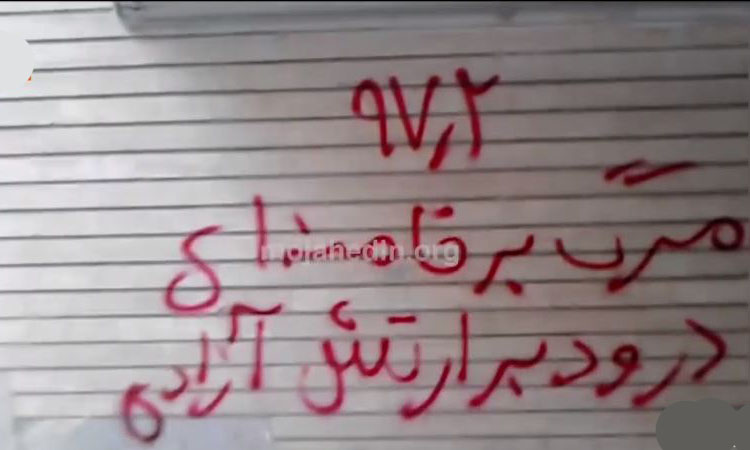 ۹۷٫۲
مرگ بر خامنه ای
mojahedin.org
درود بر ارتش آزادی